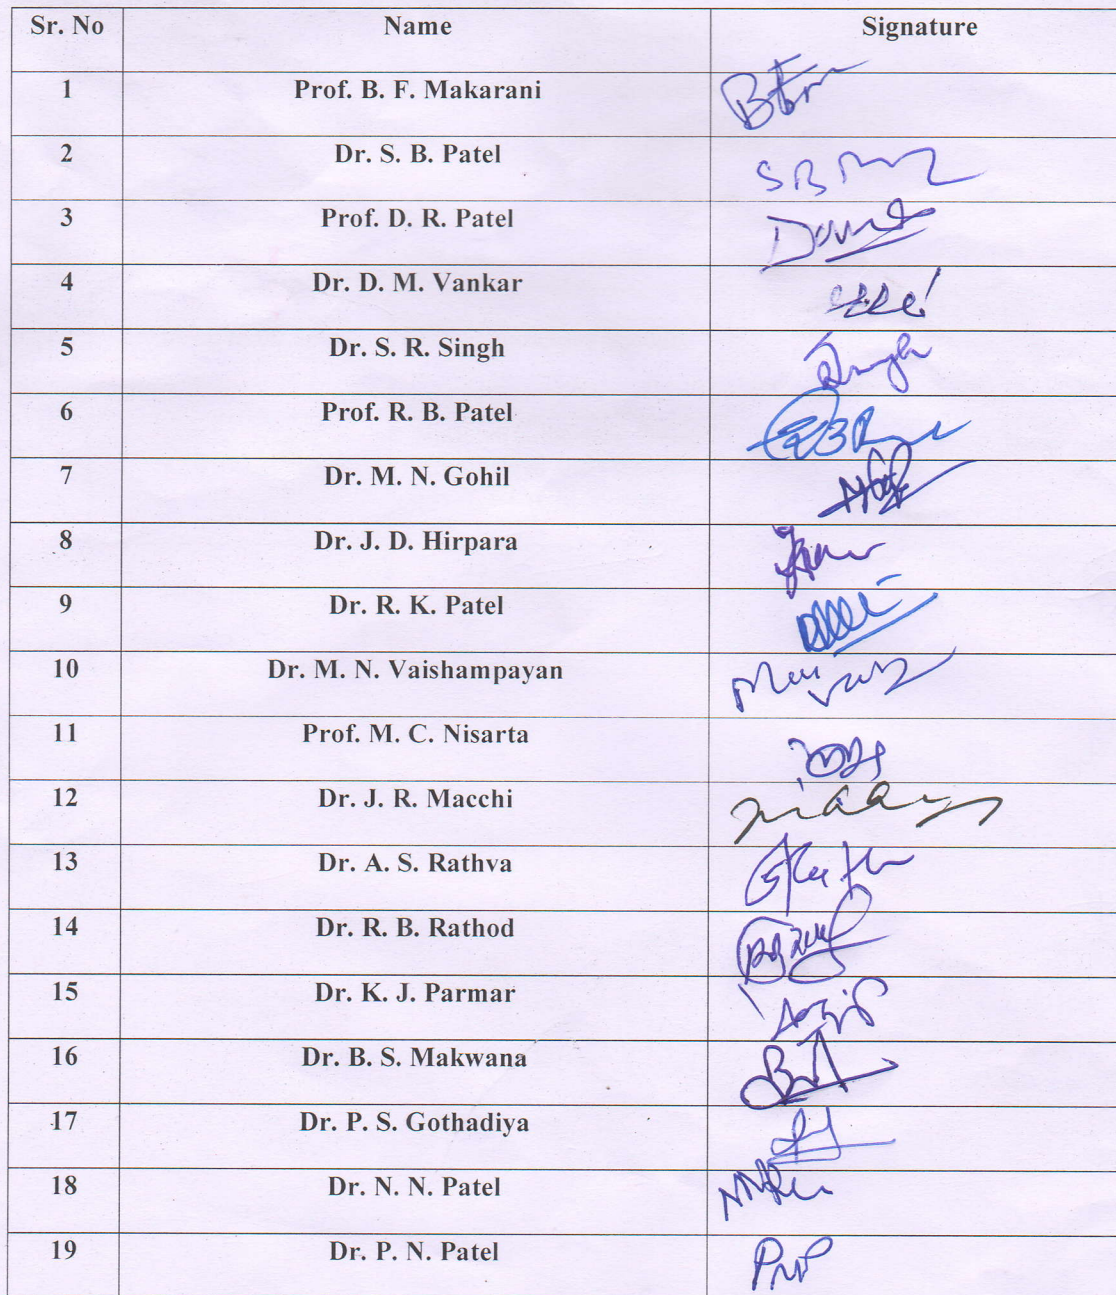 Sr. No Name Signature
1 Prof. B. F. Makarani
2 Dr. S. B. Patel
3 Prof. D. R. Patel
4 Dr. D. M. Vankar
5 Dr. S. R. Singh
6 Prof. R. B. Patel
7 Dr. M. N. Gohil
8 Dr. J. D. Hirpara
9 Dr. R. K. Patel
10 Dr. M. N. Vaishampayan
11 Prof. M. C. Nisarta
12 Dr. J. R. Macchi
13 Dr. A. S. Rathva
14 Dr. R. B. Rathod
15 Dr. K. J. Parmar
16 Dr. B. S. Makwana
17 Dr. P. S. Gothadiya
18 Dr. N. N. Patel
19 Dr. P. N. Patel